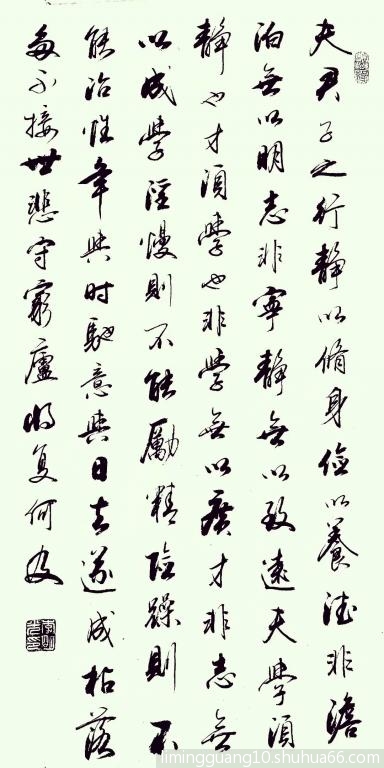 夫君子之行静以脩身儉以養德非澹
泊無以明志非寧静無以致遠夫學須
静也才須學也非學無以廣才非志無
以成學淫慢則不能勵精險躁則不
能治性年與时馳意與日去遂成枯落
多不接世悲守窮廬将复何及
limingguang10.shuhua66.com